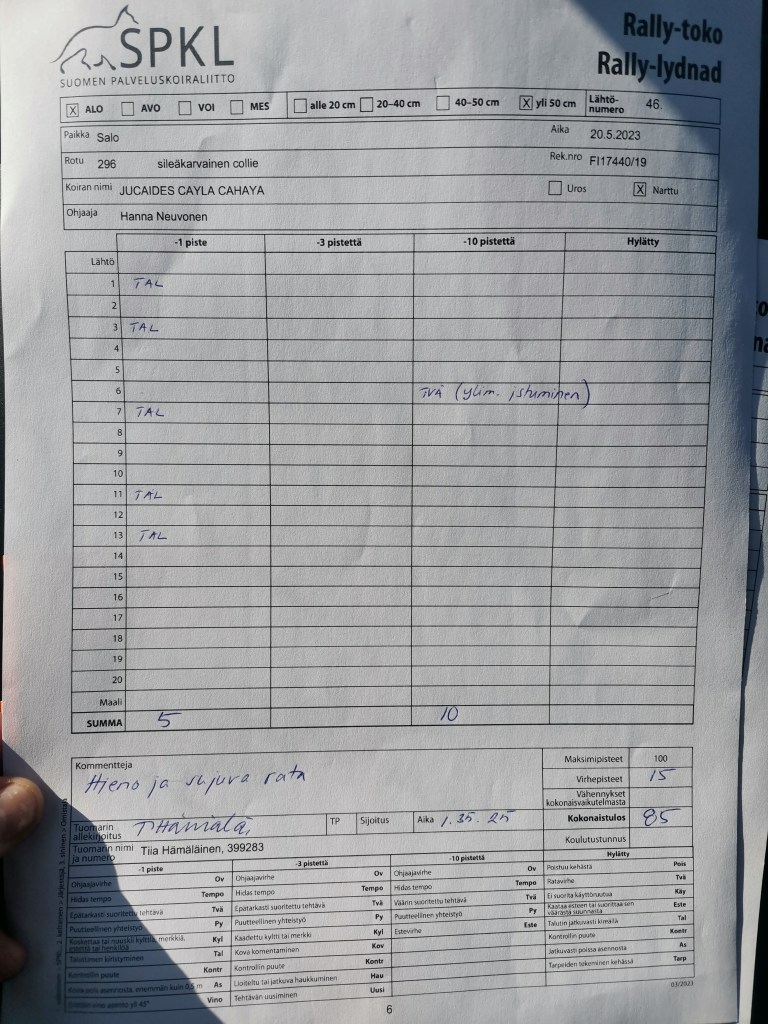 SPKL
SUOMEN PALVELUSKOIRALIITTO
Rally-toko
Rally-lydnad
X ALO AVO VOI MES alle 20 cm 20–40 cm 40–50 cm X yli 50 cm Lähtö-numero 46.
Paikka Salo Aika 20.5.2023
Rotu 296 sileäkarvainen collie Rek.nro FI17440/19
Koiran nimi JUCAIDES CAYLA CAHAYA Uros X Narttu
Ohjaaja Hanna Neuvonen
-1 piste -3 pistettä -10 pistettä Hylätty
Lähtö
1 TAL
2
3 TAL
4
5
6 TVÄ (ylim. istuminen)
7 TAL
8
9
10
11 TAL
12
13 TAL
14
15
16
17
18
19
20
Maali
SUMMA 5 10
Kommentteja
Hieno ja sujuva rata
Maksimipisteet 100
Virhepisteet 15
Vähennykset kokonaisvaikutelmasta
Kokonaistulos 85
Koulutustunnus
Tuomarin allekirjoitus THämälä, TP Sijoitus Aika 1.35.25
Tuomarin nimi ja numero Tiia Hämäläinen, 399283
-1 piste
Ohjaajavirhe Ov
Hidas tempo Tempo
Epätarkasti suoritettu tehtävä Tvä
Puutteellinen yhteistyö Py
Koskettaa tai nuuskii kylttiä, merkkiä, Kyl
Taluttimen kiristyminen Tal
Kontrollin puute Kontr
enemmän kuin 0,5 m As
yli 45° Vino
-3 pistettä
Ohjaajavirhe Ov
Hidas tempo Tempo
Epätarkasti suoritettu tehtävä Tvä
Puutteellinen yhteistyö Py
Kaadettu kyltti tai merkki Kyl
Kova komentaminen Kov
Kontrollin puute Kontr
Lioiteltu tai jatkuva haukkuminen Hau
Tehtävän uusiminen Uusi
-10 pistettä
Ohjaajavirhe Ov
Hidas tempo Tempo
Väärin suoritettu tehtävä Tvä
Puutteellinen yhteistyö Py
Estevirhe Este
Hylätty
Poistuu kehästä Pois
Ratavirhe Tvä
Ei suorita käyttöruutua Käy
Kaataa esteen tai suorittaa sen väärästä suunnasta Este
Talutin jatkuvasti kireällä Tal
Kontrollin puute Kontr
Jatkuvasti poissa asennosta As
Tarpeiden tekeminen kehässä Tarp
03/2023
6